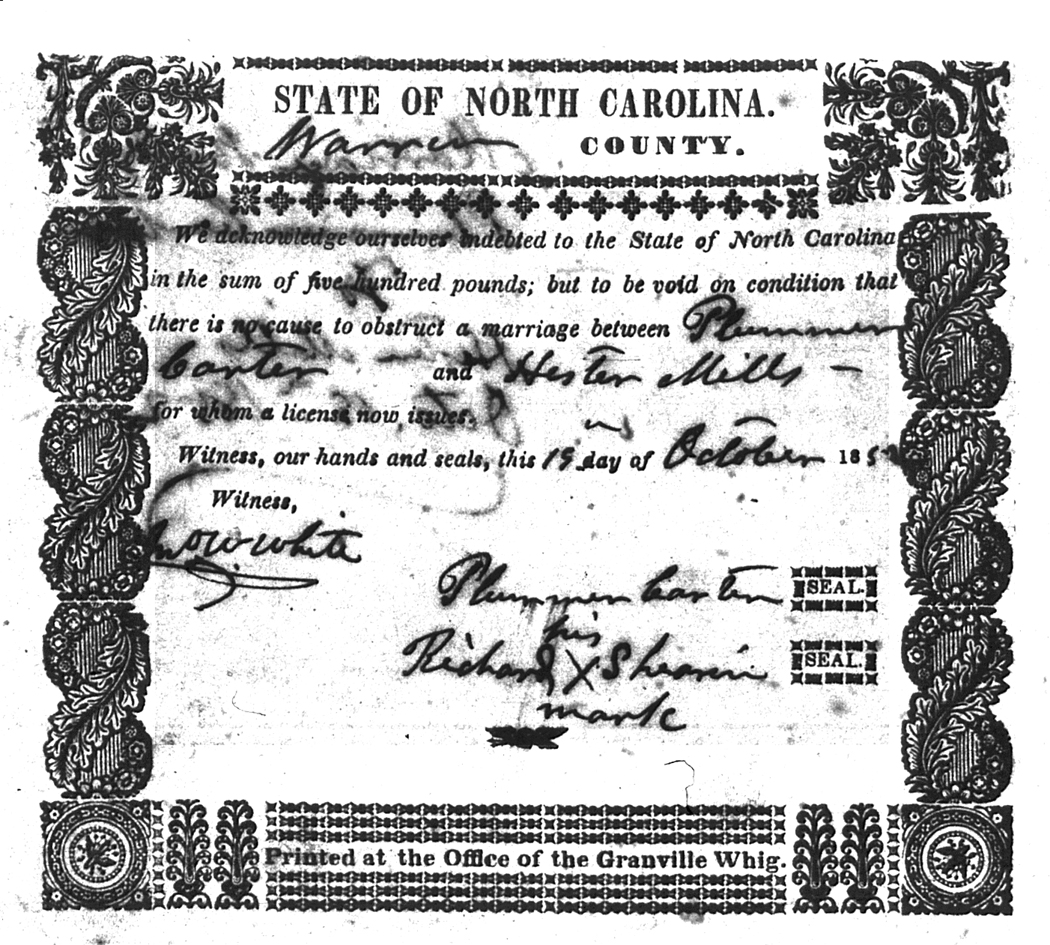 STATE OF NORTH CAROLINA.
Warren COUNTY.
We acknowledge ourselves indebted to the State of North Carolina
in the sum of five hundred pounds; but to be void on condition that
there is no cause to obstruct a marriage between Plummer
Carter and Hester Mills —
for whom a license now issues.
Witness, our hands and seals, this 19 day of October 185
Witness,
Jno W White
Plummer Carter SEAL.
his
Richard X Shearin SEAL.
mark
Printed at the Office of the Granville Whig.